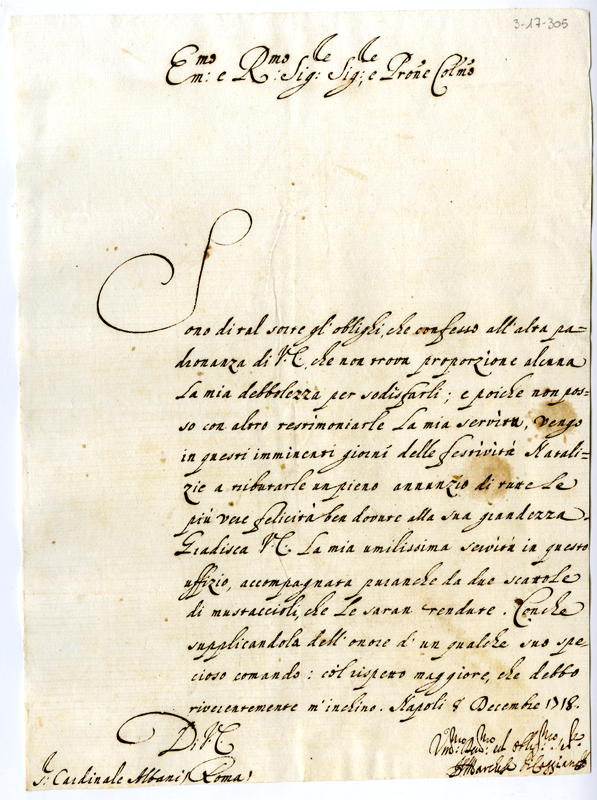 3-17-305
Em:mo e R:mo Sig:le Sig:le e Pron̄e Colmo
Sono di tal sorte gl'oblighi, che confesso all'alta pa=
dronanza di V.E., che non trova proporzione alcuna
la mia debbolezza per sodisfarli; e poiche non pos=
so con altro testimoniarle la mia servitù, vengo
in questi imminenti giorni delle festività Natali=
zie a tributarle un pieno annunzio di tutte le
più vere felicità ben dovute alla sua grandezza.
Gradisca V.E. la mia umilissima servitù in questo
uffizio, accompagnata pur anche da due scattole
di mustaccioli, che le saran rendute. Con che
supplicandola dell'onore d'un qualche suo spe=
cioso comando: col rispetto maggiore, che debbo
riverentemente m'inchino. Napoli 8 Decembre 1718.
Di V.E.
Marchese
S: Cardinale Albani (Roma)